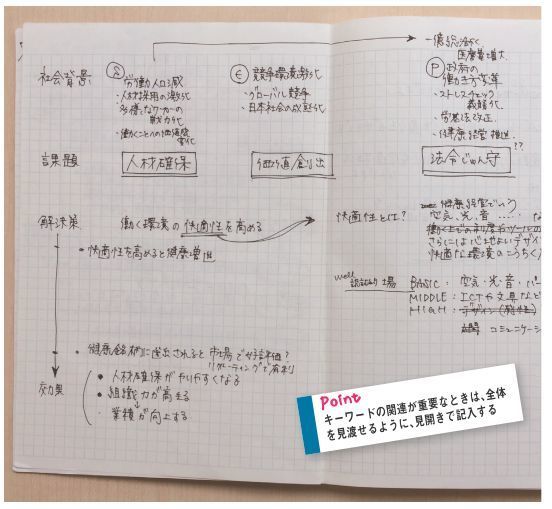 社会背景
Ⓢ 労働人口減
・人材採用の激化
・多様なワーカーの
戦力化
・働くことへの価値観
変化
Ⓔ 競争環境激化
・グローバル競争
・日本社会の成熟化
一億総活躍
医療費増大
Ⓟ 政府の
働き方改革
・ストレスチェック
義務化
・労基法改正
・健康経営推進
課題
人材確保
価値創出
法令じゅん守
??
解決策
働く環境の快適性を高める
・快適性を高めると健康増進
快適性とは?
健康経営でいう
空気、光、音……な
さらには心地よいデザイ
快適な環境のこうちく
well
認証
BASIC: 空気・光音・パー
MIDDLE: ICTや文具など
HIGH: デザイン
コミュニケーシ
・健康銘柄に選出されると市場で好評価?
リクルーティングで有利
効果
・人材確保がやりやすくなる
・組織力が高まる
・業績が向上する
Point
キーワードの関連が重要なときは、全体
を見渡せるように、見開きで記入する